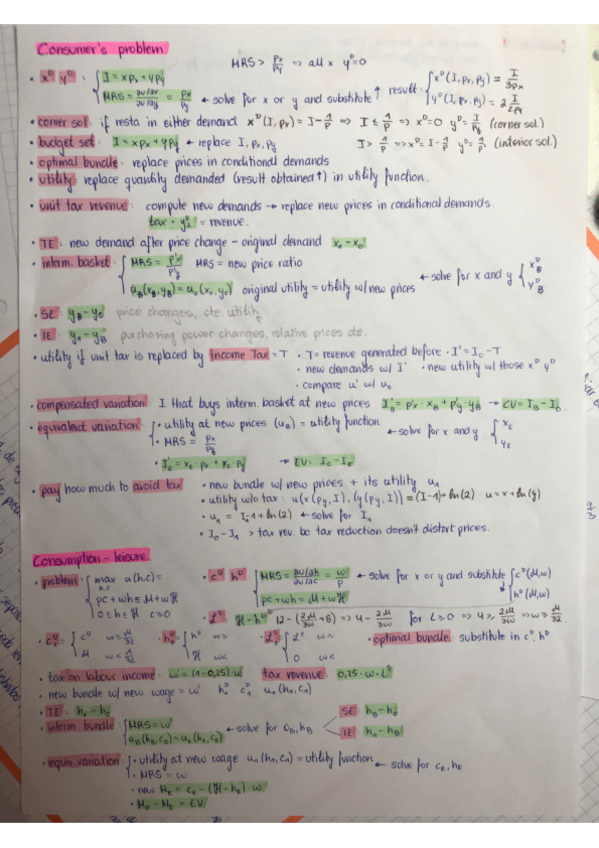 Consumer's problem
MRS > px/py => all x yᴰ=0
• xᴰ yᴰ : { I = x px + y py
MRS = (∂u/∂x)/(∂u/∂y) = px/py ← solve for x or y and substitute ↑ result: { xᴰ(I, px, py) = I/3px
yᴰ(I, px, py) = 2 I
• corner sol: if resta in either demand xᴰ(I, px) = I - 1/p => I ≤ 1/p => xᴰ=0 yᴰ= I/py (corner sol.)
• budget set: I = x px + y py ← replace I, px, py I > 1/p => xᴰ= I - 1/p yᴰ= 1/p (interior sol.)
• optimal bundle: replace prices in conditional demands
• utility: replace quantity demanded (result obtained ↑) in utility function.
• unit tax revenue: compute new demands → replace new prices in conditional demands.
tax · = revenue.
• TE: new demand after price change - original demand x₁ - x₀
• interm. basket: { MRS = p'x/p'y MRS = new price ratio
u_B(x_B, y_B) = u₀(x₀, y₀) original utility = utility w/ new prices ← solve for x and y { xᴰ_B
yᴰ_B
• SE: y_B - y₀ price changes, cte. utility
• IE: y₁ - y_B purchasing power changes, relative prices cte.
• utility if unit tax is replaced by income Tax = T • T = revenue generated before • I' = I₀ - T
• new demands w/ I' • new utility w/ those xᴰ yᴰ
• compare u' w/ u₀
• compensated variation: I that buys interm. basket at new prices I'_B = p'x · x_B + p'y · y_B → CV = I_B - I₀
• equivalent variation: { • utility at new prices (u_B) = utility function
• MRS = px/py ← solve for x and y { x_E
y_E
• I'_E = x_E px + y_E py → EV: I₀ - I_E
• pay how much to avoid tax • new bundle w/ new prices + its utility u₁
• utility w/o tax: u(x(py, I), (y(py, I)) = (I-1) + ln(2) u = x + ln(y)
• u₁ = I - 1 + ln(2) ← solve for I₁
• I₀ - I₁ > tax rev. bc tax reduction doesn't distort prices.
Consumption - leisure
• problem: { max u(h,c) =
h,c
pc + wh ≤ M + wH
0 ≤ h ≤ H c ≥ 0
• cᴰ hᴰ: { MRS = (∂u/∂h)/(∂u/∂c) = w/p ← solve for x or y and substitute { cᴰ(M,w)
pc + wh = M + wH hᴰ(M,w)
• Lˢ: H - hᴰ 12 - (2M/3w + 8) => 4 - 2M/3w for L ≥ 0 => 4 ≥ 2M/3w => w ≥
• cᴰ = { cᴰ w ≥
M w <
• hᴰ = { hᴰ w ≥
H w <
• Lˢ = { Lˢ w ≥
0 w <
• optimal bundle: substitute in cᴰ, hᴰ
• tax on labour income: w' = (1 - 0,25) · w tax revenue: 0,25 · w · Lˢ
• new bundle w/ new wage = w' hᴰ cᴰ u₁(h₁, c₁)
• TE: h₁ - h₀
• interm. bundle: { MRS = w'
u_B(h_B, c_B) = u₀(h₀, c₀) ← solve for c_B, h_B
SE: h_B - h₀
IE: h₁ - h_B
• equiv. variation: { • utility at new wage u₁(h₁, c₁) = utility function
• MRS = w ← solve for c_E, h_E
• new M_E = c_E - (H - h_E) · w
• M₀ - M_E = EV